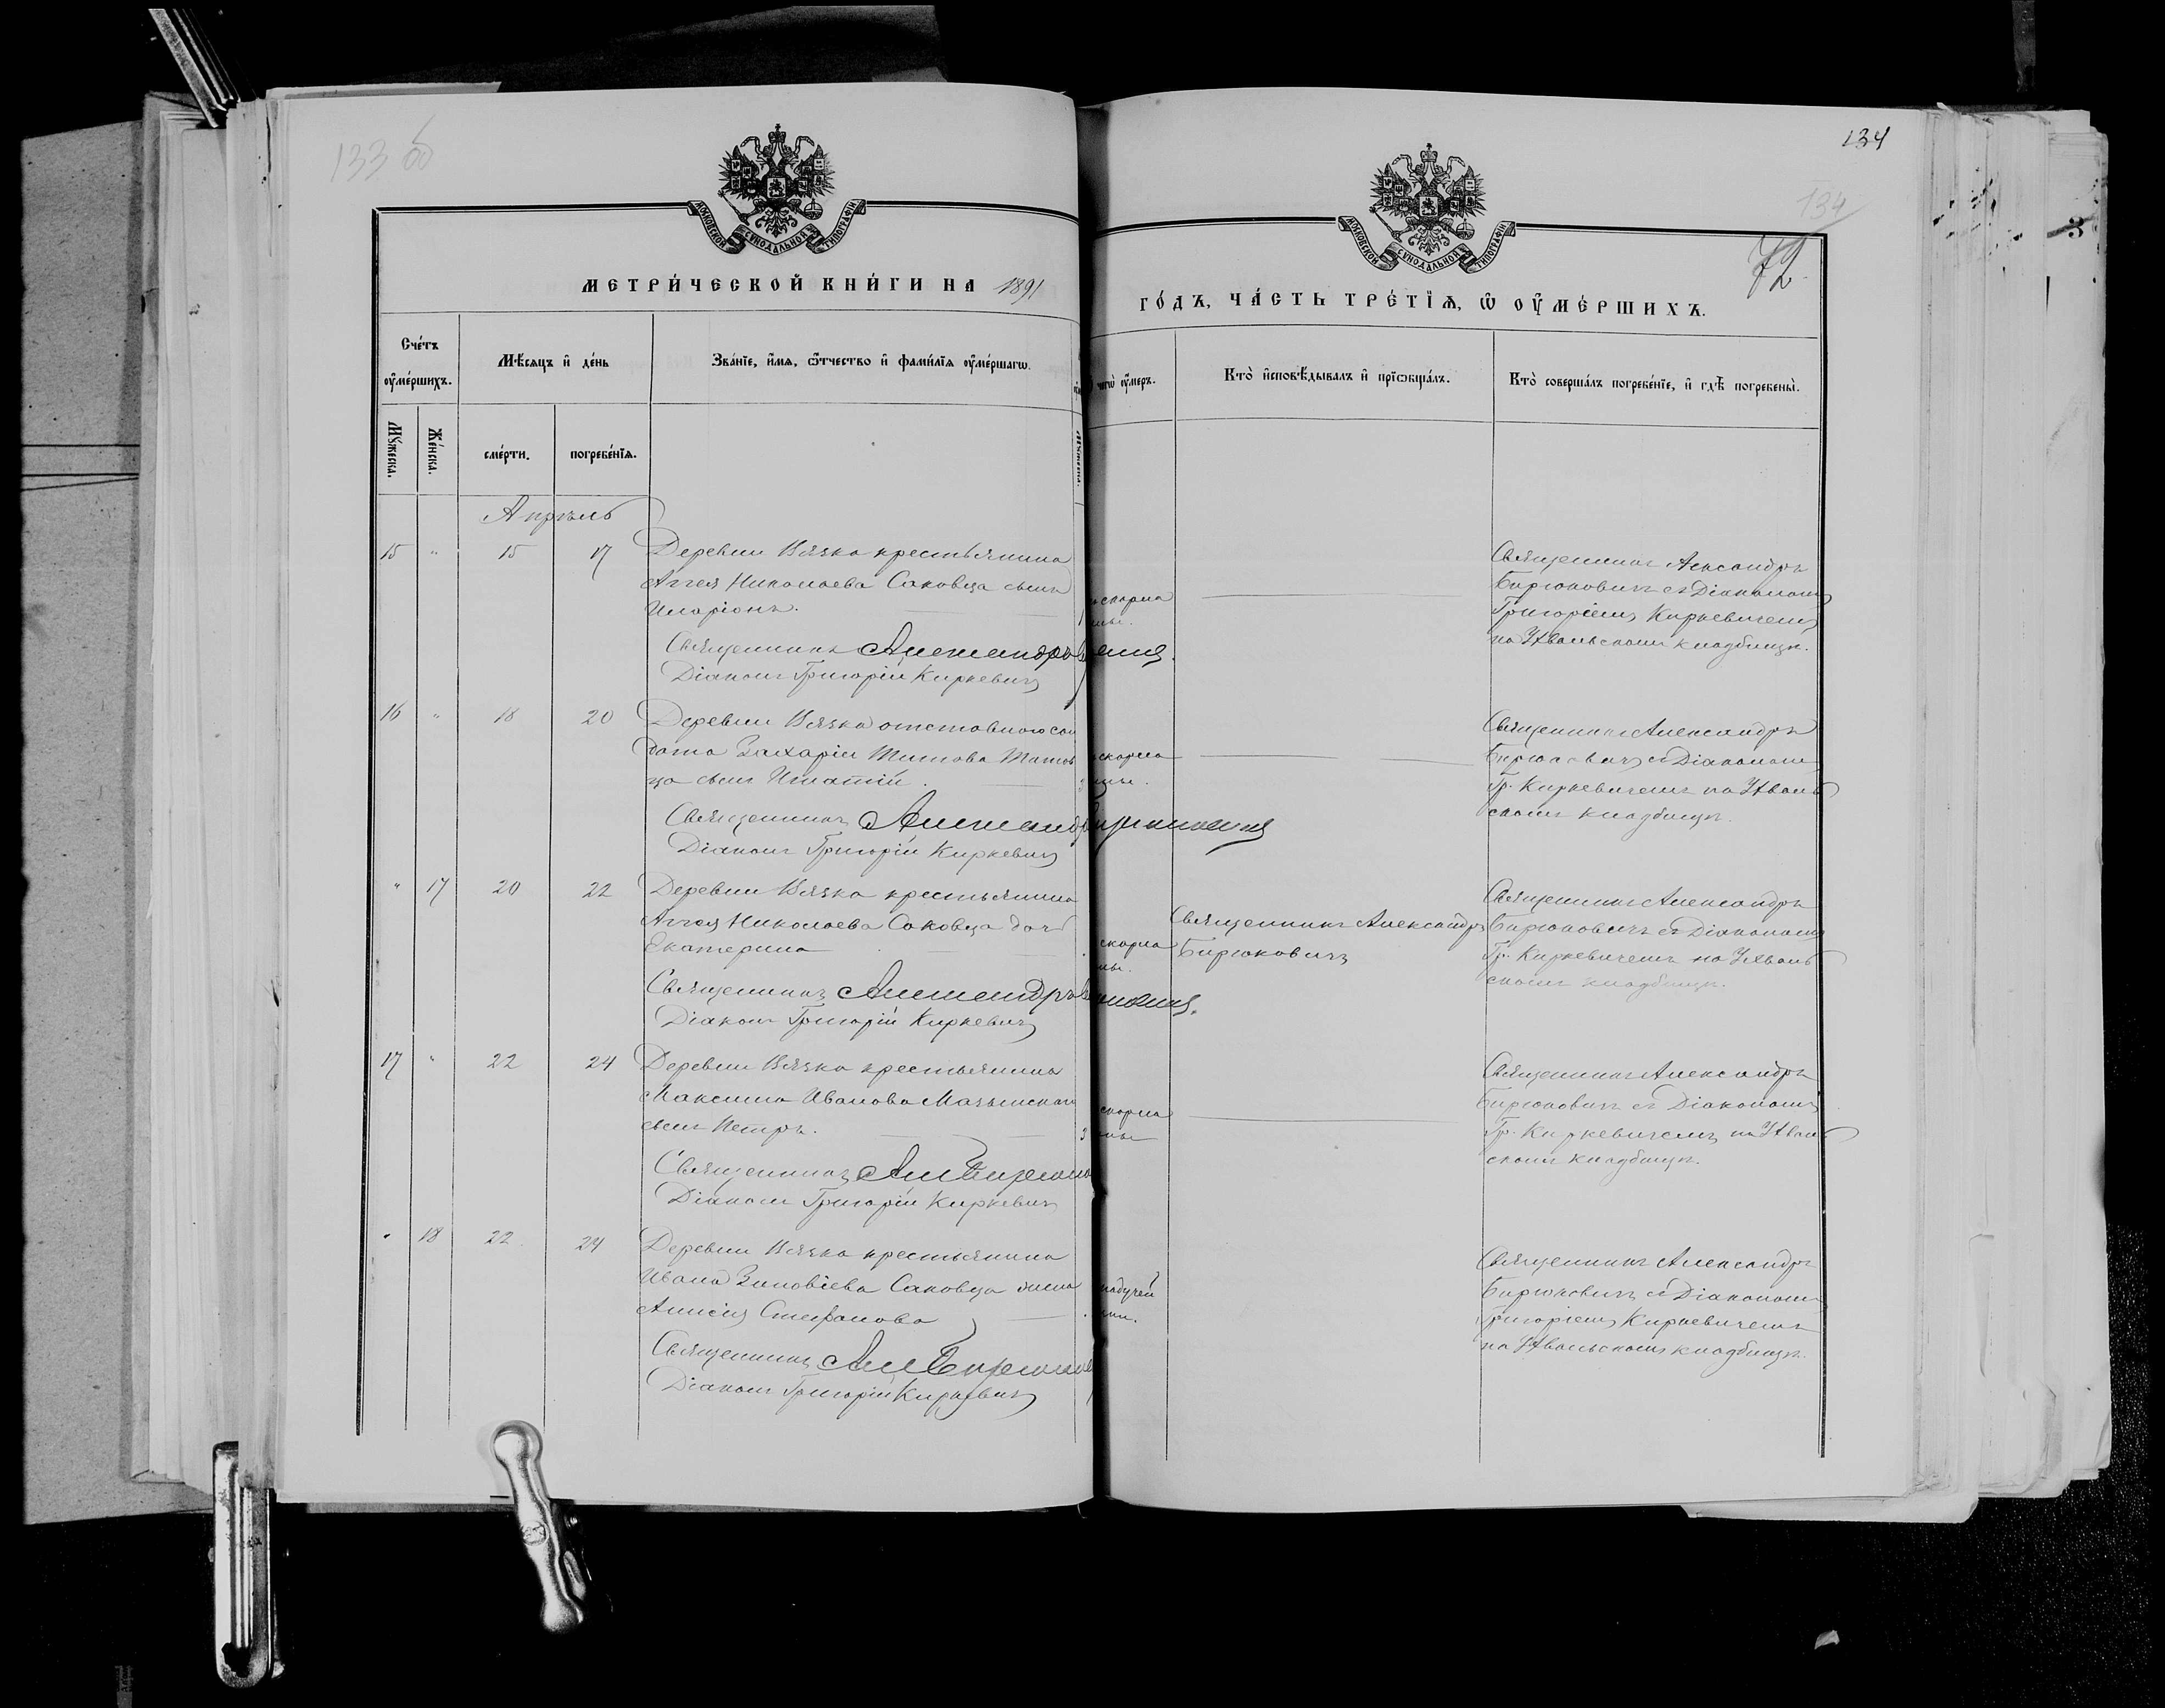 133 об
134
134
72
МОСКОВСКОЙ СѴНОДАЛЬНОЙ ТИПОГРАФІИ
МОСКОВСКОЙ СѴНОДАЛЬНОЙ ТИПОГРАФІИ
МЕТРИ́ЧЕСКОЙ КНИ́ГИ НА 1891
ГО́ДЪ, ЧА́СТЬ ТРЕ́ТЇѦ, Ѡ҆ ОУ҆МЕ́РШИХЪ.
Сче́тъ оу҆ме́ршихъ.
Мѣ́сяцъ и҆ де́нь
Зва́нїе, и҆́мя, ѻ҆́тчество и҆ фами́лїя оу҆ме́ршагѡ.
чегѡ̀ оу҆́меръ.
Кто̀ и҆сповѣ́дывалъ и҆ прїѡбща́лъ.
Кто̀ соверша́лъ погребе́нїе, и҆ гдѣ̀ погребены̀.
Мꙋ́жеска.
Же́нска.
сме́рти.
погребе́нїѧ.
Мꙋ́жеска.
Апрѣль
15 " 15 17 Деревни Вязка крестьянина
Аггея Николаева Саковца сынъ
Иларіонъ.
Священникъ Александръ
Діаконъ Григорій Киркевичъ
скарла
Священникъ Александръ
Бирюковичъ съ Діакономъ
Григоріемъ Киркевичемъ
на Увольскомъ кладбищѣ.
16 " 18 20 Деревни Вязка отставного сол
дата Захаріи Титова
ца сынъ Игнатій.
Священникъ Александръ
Діаконъ Григорій Киркевичъ
скарла
Священникъ Александръ
Бирюковичъ съ Діакономъ
Гр. Киркевичемъ на Уволь
скомъ кладбищѣ.
" 17 20 22 Деревни Вязка крестьянина
Аггея Николаева Саковца дочь
Екатерина
Священникъ Александръ
Діаконъ Григорій Киркевичъ
скарла
Священникъ Александръ
Бирюковичъ
Священникъ Александръ
Бирюковичъ съ Діакономъ
Гр. Киркевичемъ на Уволь
скомъ кладбищѣ.
17 " 22 24 Деревни Вязка крестьянина
Максима Иванова
сынъ Петръ.
Священникъ Ал Бирюков
Діаконъ Григорій Киркевичъ
3
скарла
Священникъ Александръ
Бирюковичъ съ Діакономъ
Гр. Киркевичемъ на Уволь
скомъ кладбищѣ.
" 18 22 24 Деревни Вязка крестьянина
Ивана Зиновіева Саковца жена
Анисія Стефанова
Священникъ Ал Бирюков
Діаконъ Григорій Киркевичъ
падучей
Священникъ Александръ
Бирюковичъ съ Діакономъ
Григоріемъ Киркевичемъ
на Увольскомъ кладбищѣ.